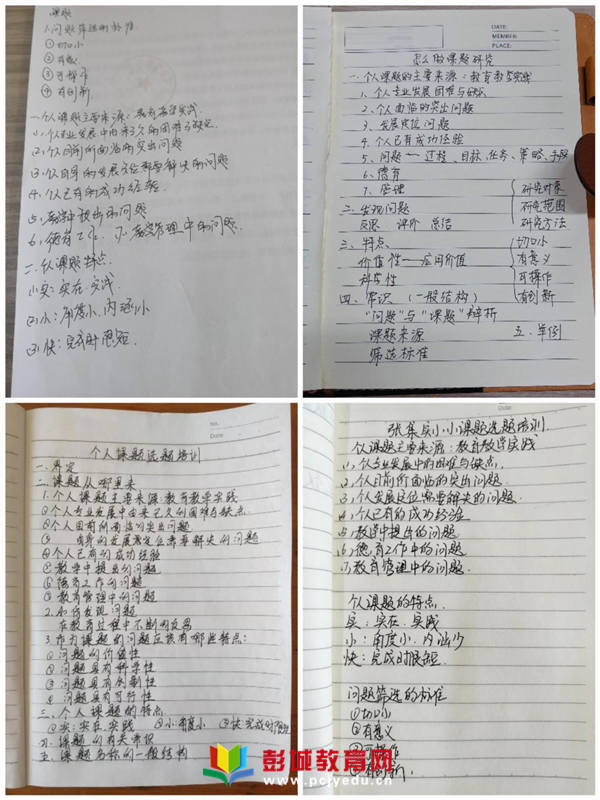 课题
1.问题筛选的标准
① 切口小
② 有意义
③ 可操作
④ 有创新
一.个人课题主要来源:教育教学实践
(1)个人专业发展中由来已久的困难与缺点
(2)个人目前所面临的突出问题
(3)个人自身的发展定位需要解决的问题
4、个人已有的成功经验
5、教学中提出的问题
6、德育工作、
教育管理中的问题
二.个人课题特点
(1)实:实在、实践
(2)小:角度小、内涵小
(3)快:完成时限短
DATE:
MEMBER:
PLACE:
怎么做课题研究
一.个人课题的主要来源:教育教学实践
1、个人专业发展困难与缺点
2、个人面临的突出问题
3、发展定位问题
4、个人已有成功经验
5、问题—过程、目标、任务、策略、手段
6、德育
7、管理
二、发现问题
反思 评价 总结
研究对象
研究范围
研究方法
三、特点
价值性—应用价值
科学性
切口小
有意义
可操作
有创新
四、常识(一般结构)
"问题"与"课题"辩析
课题来源
筛选标准
五、举例
No.
Date
个人课题选题培训
一.界定
二.课题从哪里来
1.个人课题主要来源:教育教学实践
①个人专业发展中由来已久的困难与缺点
②个人目前所面临的突出问题
③自身的发展定位需要解决的问题
④个人已有的成功经验
⑤教学中提出的问题
⑥德育工作的问题
⑦教育管理中的问题
2.如何发现问题
在教育过程中不断的反思
3.作为课题的问题应该有哪些特点:
①问题的价值性
②问题具有科学性
③问题具有创新性
④问题具有可行性
三、个人课题的特点
①实:实在、实践 ②小:角度小 ③快:完成时限短
四.课题的有关常识
五.课题名称的一般结构
Date
张集实小小课题选题培训
个人课题主要来源:教育教学实践
(1)个人专业发展中的困难与缺点.
(2)个人目前所面临的突出问题
(3)个人发展定位需要解决的问题.
(4)个人已有的成功经验
(5)教学中提出的问题
(6)德育工作中的问题
(7)教育管理中的问题.
个人课题的特点
实:实在、实践
小:角度小、内涵少
快:完成时限短.
问题筛选的标准
①切口小
②有意义
③可操作
④有创新.
彭城教育网
www.pcjyedu.cn